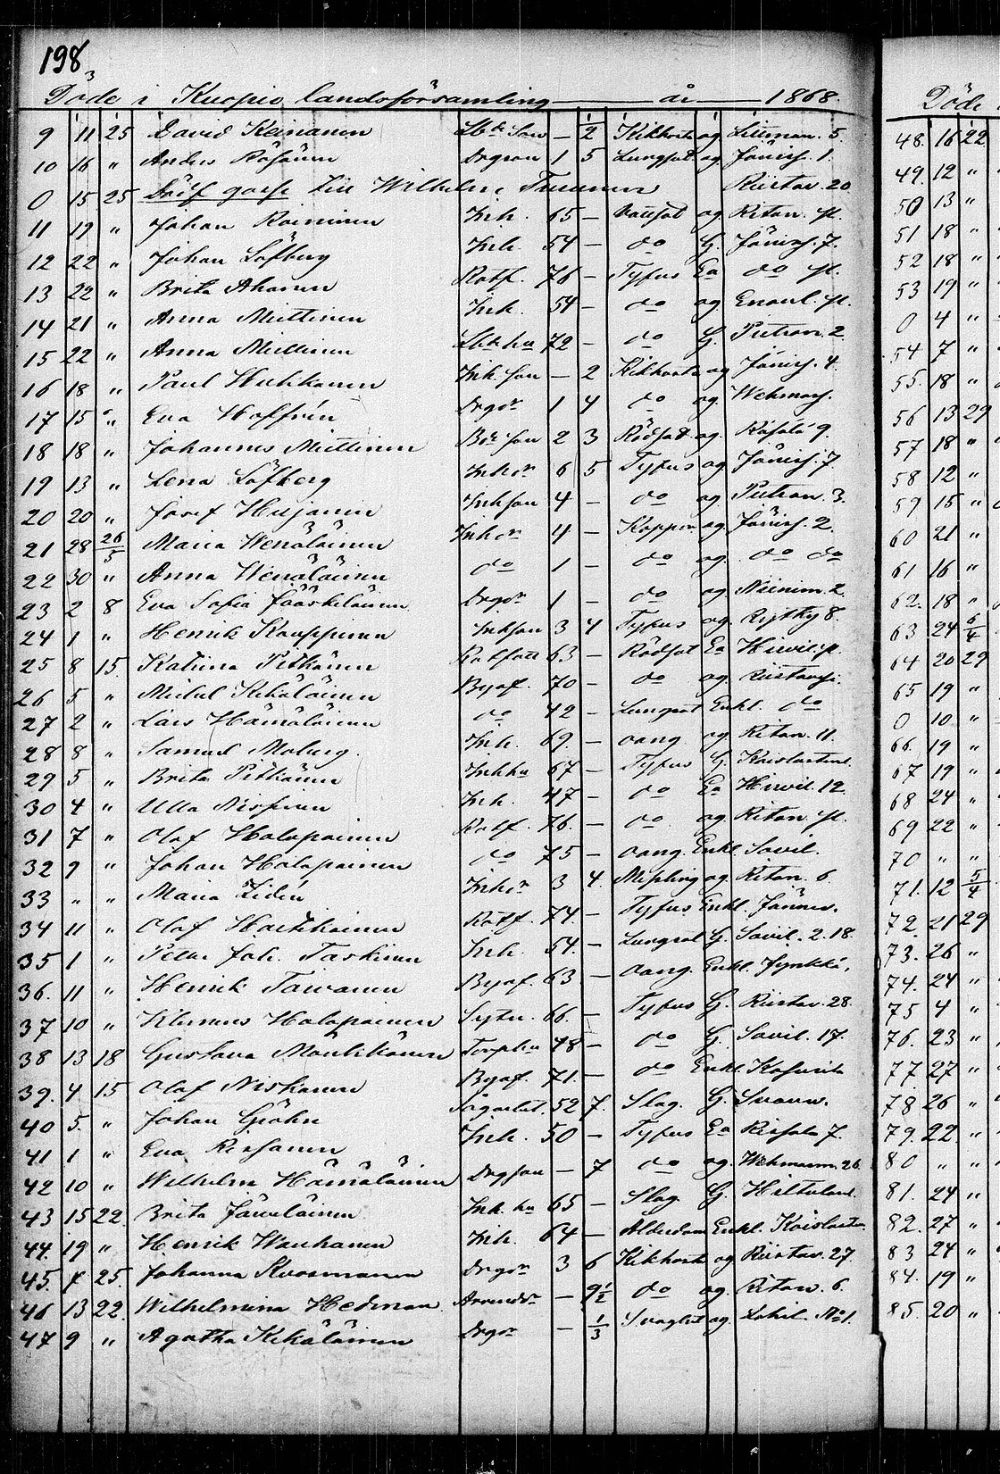 198
Döde i Kuopio landsförsamling år 1868
9 11 25 David Keinanen — 2 Kikhosta og 5.
10 16 " Anders Räsänen Drgson 1 5 Lungsot og Jänisj. 1.
0 15 25 Wilhelm Turunen Ristav. 20
11 19 " Johan Roininen Inh. 65 — og Ritan. pl.
12 22 " Johan Löfberg Inh. 54 — do G. Jänisj. 7.
13 22 " Brita Ahonen Rotf. 76 — Tyfus Ea do pl.
14 21 " Anna Miettinen Inh. 54 — do og pl.
15 22 " Anna Miettinen 72 — do G. Putron. 2
16 18 " Paul Huhkanen Inh. son — 2 Kikhosta og Jänisj. 4.
17 15 " Eva Hoffrén Drgdr 1 4 do og Wehmasj.
18 18 " Johannes Miettinen Bdeson 2 3 Rödsot og 9.
19 13 " Lena Löfberg Inhdr 6 5 Tyfus og Jänisj. 7
20 20 " Josef Inhson 4 — do og Putron. 3.
21 28 26/5 Maria Wenäläinen Inhdr 4 — Koppor og Jänisj. 2.
22 30 " Anna Wenäläinen do 1 — do og do do
23 2 8 Eva Sofia Jääskeläinen Drgdr 1 — do og 2.
24 1 " Henrik Kauppinen Inhson 3 4 Tyfus og Rytky 8.
25 8 15. Katrina Pitkänen 63 — Rödsot Ea
26 5 " Mickel Kekäläinen Byaf. 70 — do og
27 2 " Lars Hämäläinen do 42 — Lungsot Enkl. do
28 8 " Samuel Moberg. Inh. 69. — oang og Ritan. 11.
29 5 " Brita Pitkänen Inhhu 67 — Tyfus G.
30 4 " Ulla Nissinen Inh. 47 — do Ea Hirvil. 12.
31 7 " Olof Halopainen Rotf. 76. — do og Ritan. pl.
32 9 " Johan Halopainen do 75 — oang. Enkl. Savil.
33 " " Maria Lidén Inhdr 3 4. Messling og Ritan. 6.
34 11 " Olof Hartikainen Rotf. 74 — Tyfus Enkl. Jännev.
35 1 " Petter Joh. Taskinen Inh. 54. — Lungsot G. Savil. 2. 18.
36. 11 " Henrik Taivanen Byaf. 63 — oang. Enkl. Jynkkä.
37 10 " Klemens Halopainen Sytn. 66. — Tyfus G. Ristav. 28.
38 13 18 Gustava Mönkkönen Torphu 48 — do G. Savil. 17.
39. 4 15 Olof Niskanen Byaf. 71. — do Enkl.
40 5. " Johan Gröhn 52 7. Slag. G.
41 1 " Eva Inh. 50 — Tyfus Ea 7.
42 10 " Wilhelm Hämäläinen Drgson — 7 do og Wehmasm. 26.
43 15 22. Brita Jauvelainen Inh. hu 65 — Slag G.
44. 19 " Henrik Wanhanen Inh. 64 — Ålderdom Enkl.
45. 7 25. Johanna Kuosmanen Drgdr 3 6 Kikhosta og Ristav. 27.
46 13 22. Wilhelmina Hedman — 9½ do og Ritan. 6.
47 9 " Agatha Kekäläinen Drgdr — 1/3 og No1.
Döde
48. 16 22
49. 12 "
50 13 "
51 18 "
52 18 "
53 19 "
0 4 "
54 7 "
55. 18 "
56 13 29
57 18 "
58 12 "
59 15 "
60 21 "
61 16 "
62. 18 "
63 24 5/4
64 20 29
65 19 "
0 10 "
66. 19 "
67 19 "
68 24 "
69 22 "
70 " "
71. 12 5/4
72. 21 29
73. 26 "
74. 24 "
75 4 "
76. 23 "
77 27 "
78 26 "
79. 22. "
80 " "
81. 24 "
82. 27 "
83 24 "
84. 19 "
85. 20 "